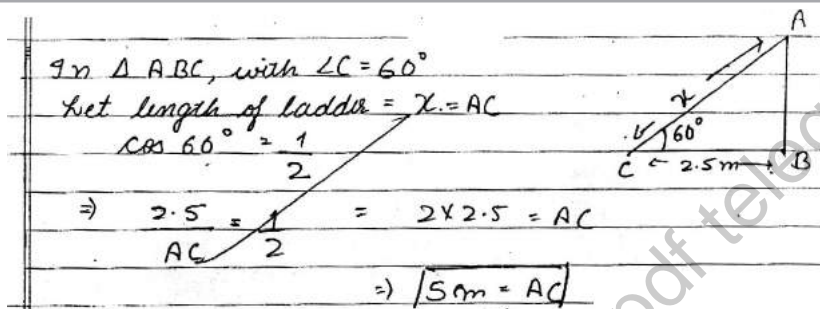 In Δ ABC, with ∠C = 60°
Let length of ladder = x = AC
cos 60° = 1/2
⇒ 2.5/AC = 1/2 = 2×2.5 = AC
⇒ 5m = AC
A
x
60°
C ← 2.5m → B
pdf teleg